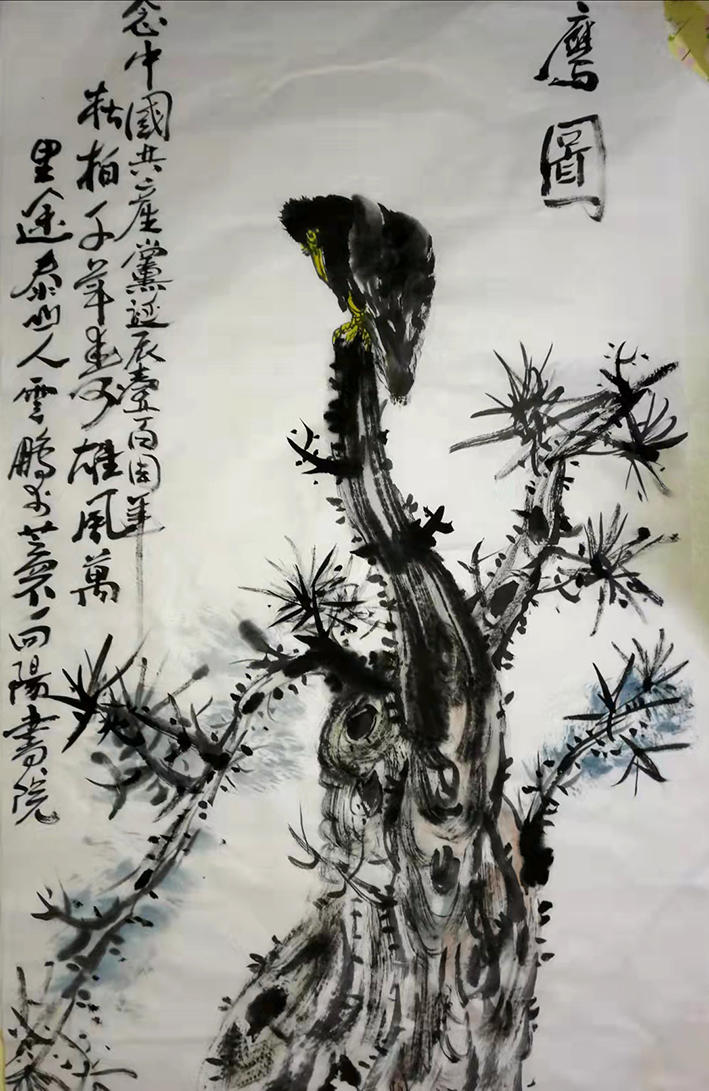 鷹圖
念中國共產黨誕辰壹百周年
松柏千年雄風萬
里泰山人雲鵬向陽書院